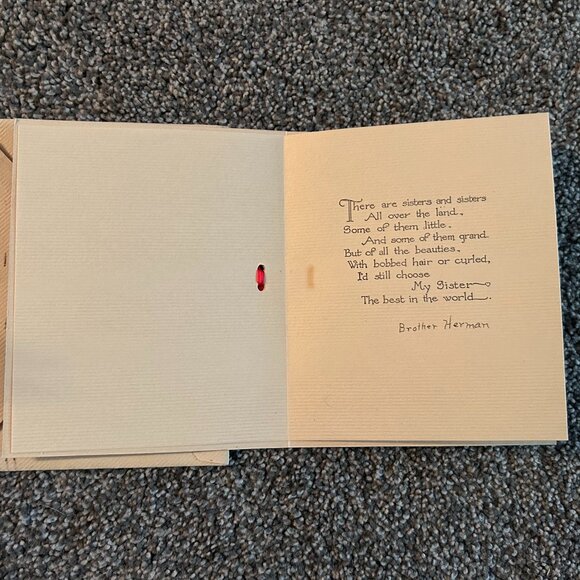 There are sisters and sisters
All over the land,
Some of them little,
And some of them grand.
But of all the beauties,
With bobbed hair or curled,
I'd still choose
My Sister
The best in the world.
Brother Herman